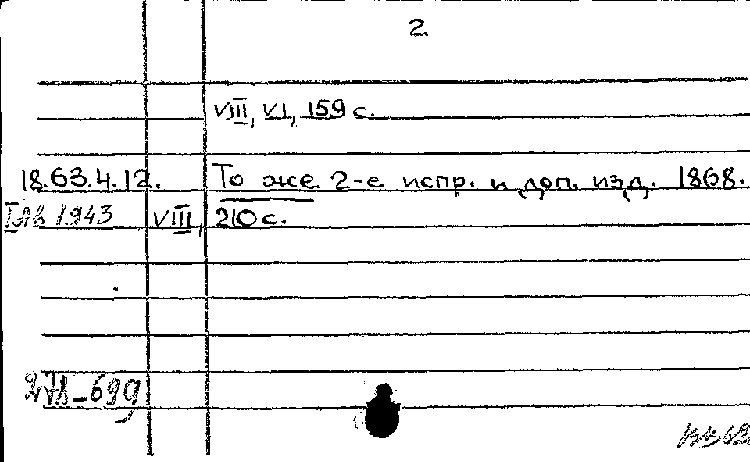 2
VIII, VI, 159 с.
18.63.4.12. То же 2-е испр. и доп. изд. 1868.
1943 VIII, 210 с.
699